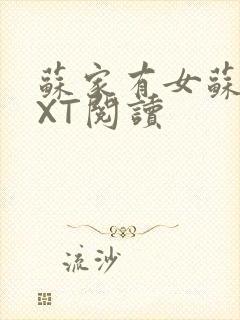 蘇家有女蘇
XT閱讀
流沙